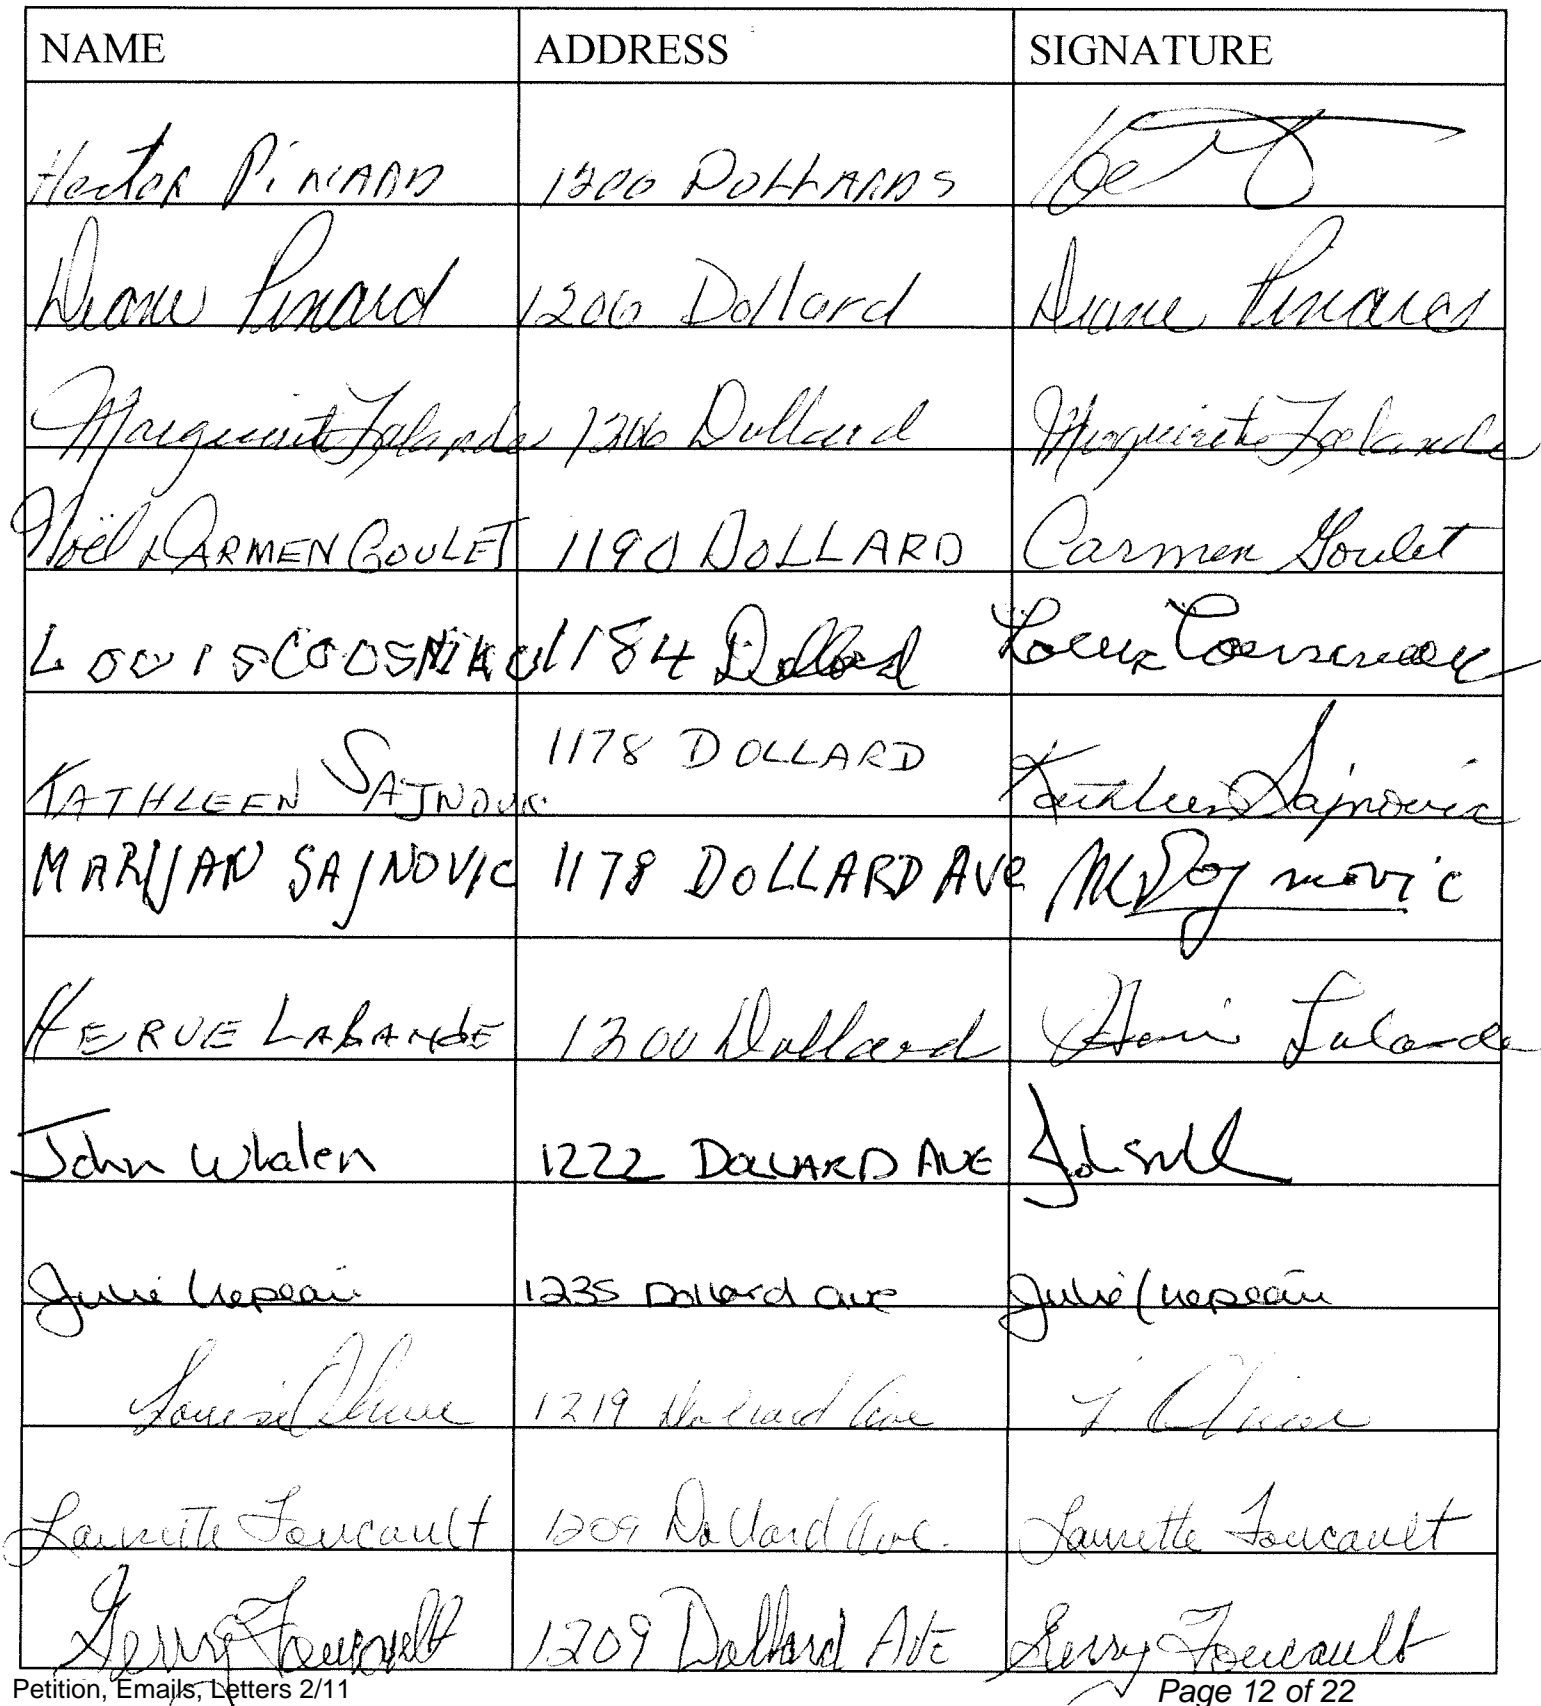 NAME ADDRESS SIGNATURE
Hector PiNARD 1200 DOLLARDS
Diane Pinard 1206 Dollard Diane Pinard
Marguerite Lalande 1206 Dollard Marguerite Lalande
Noël & CARMEN GOULET 1190 DOLLARD Carmen Goulet
LOUIS 1184 Dollard Louis
KATHLEEN SAJNOVIC 1178 DOLLARD Kathleen Sajnovic
MARIJAN SAJNOVIC 1178 DOLLARD AVE
HERVE LALANDE 1200 Dollard Lalande
John Whalen 1222 DOLLARD AVE
Julie 1235 Dollard ave Julie
Louise 1219 Dollard Ave L
Laurette Foucault 1209 Dollard Ave. Laurette Foucault
Gerry Foucault 1209 Dollard AVE Gerry Foucault
Petition, Emails, Letters 2/11 Page 12 of 22